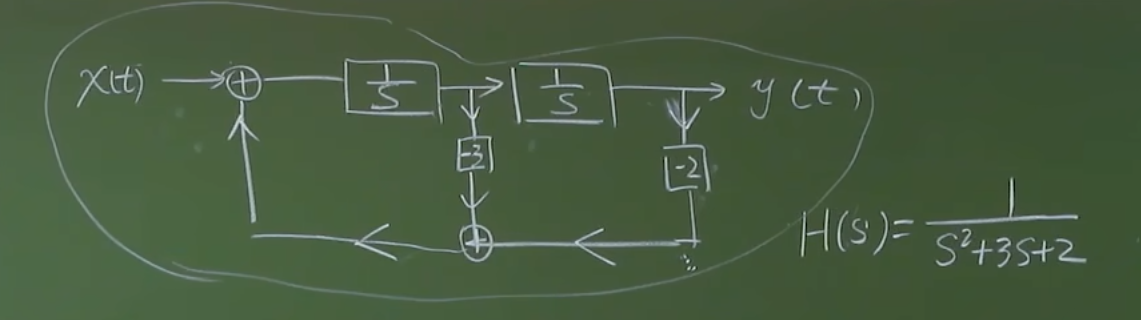 x(t) + 1/S 1/S y(t)
-3 -2
+
H(S)= 1/(S²+3S+2)